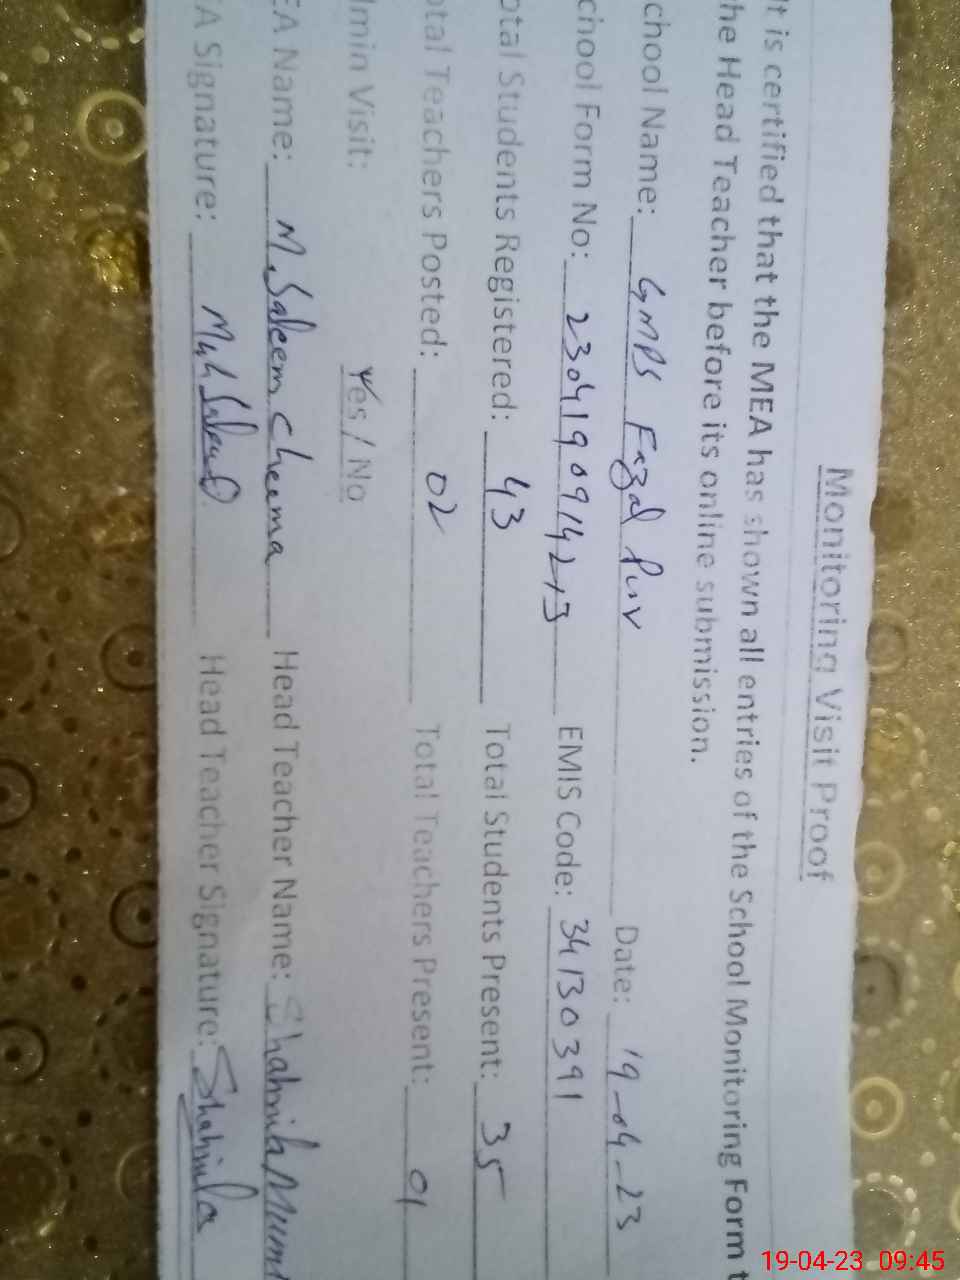 Monitoring Visit Proof
It is certified that the MEA has shown all entries of the School Monitoring Form t
he Head Teacher before its online submission.
chool Name: GMPS Fazal Pur Date: 19-04-23
chool Form No: 230419091423 EMIS Code: 34130391
otal Students Registered: 43 Total Students Present: 35
otal Teachers Posted: 02 Total Teachers Present: 01
lmin Visit: Yes / No
EA Name: M. Saleem Cheema Head Teacher Name:
EA Signature: Muh Saleem Head Teacher Signature: Shahnila
19-04-23 09:45